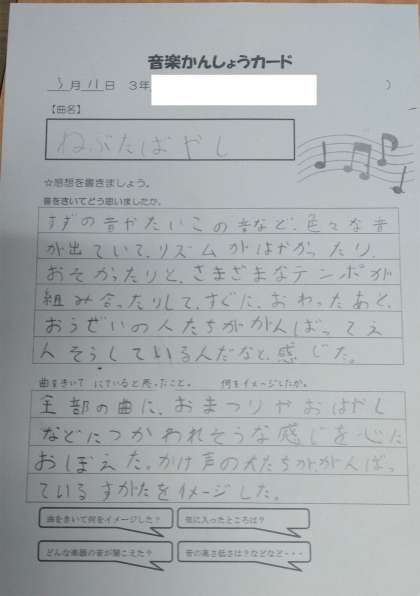 音楽かんしょうカード
3月11日 3年
)
【曲名】
ねぶたばやし
☆感想を書きましょう。
音をきいてどう思いましたか。
すずの音やたいこの音など、色々な音
が出ていて、リズムがはやかったり、
おそかったりと、さまざまなテンポが
組み合ったりして、すぐに、おわったあと、
おうぜいの人たちががんばってえ
んそうしているんだなと、感じた。
曲をきいて にていると思ったこと。 何をイメージしたか。
全部の曲に、おまつりやおはやし
などにつかわれそうな感じを心に
おぼえた。かけ声の人たちががんばっ
ているすがたをイメージした。
曲をきいて何をイメージした?
気に入ったところは?
どんな楽器の音が聞こえた?
音の高さ低さは?などなど・・・